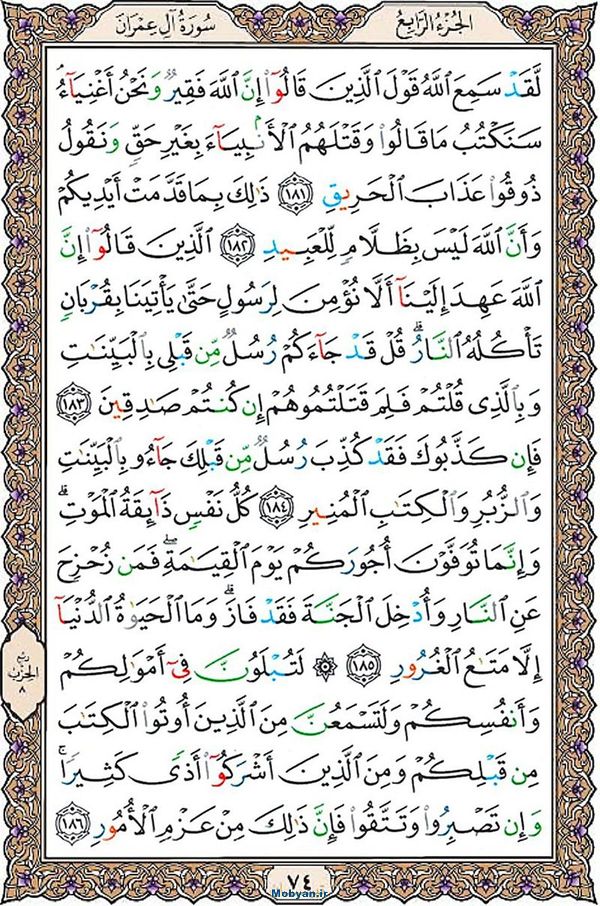 سُورَةُ آلِ عِمْرَان
الجُزءُ الرَّابِعُ
لَّقَدْ سَمِعَ اللَّهُ قَوْلَ الَّذِينَ قَالُوٓا۟ إِنَّ اللَّهَ فَقِيرٌ وَنَحْنُ أَغْنِيَآءُ
سَنَكْتُبُ مَا قَالُوا۟ وَقَتْلَهُمُ الْأَنۢبِيَآءَ بِغَيْرِ حَقٍّ وَنَقُولُ
ذُوقُوا۟ عَذَابَ الْحَرِيقِ ١٨١ ذَٰلِكَ بِمَا قَدَّمَتْ أَيْدِيكُمْ
وَأَنَّ اللَّهَ لَيْسَ بِظَلَّامٍ لِّلْعَبِيدِ ١٨٢ الَّذِينَ قَالُوٓا۟ إِنَّ
اللَّهَ عَهِدَ إِلَيْنَآ أَلَّا نُؤْمِنَ لِرَسُولٍ حَتَّىٰ يَأْتِيَنَا بِقُرْبَانٍ
تَأْكُلُهُ النَّارُ ۗ قُلْ قَدْ جَآءَكُمْ رُسُلٌ مِّن قَبْلِى بِالْبَيِّنَٰتِ
وَبِالَّذِى قُلْتُمْ فَلِمَ قَتَلْتُمُوهُمْ إِن كُنتُمْ صَٰدِقِينَ ١٨٣
فَإِن كَذَّبُوكَ فَقَدْ كُذِّبَ رُسُلٌ مِّن قَبْلِكَ جَآءُو بِالْبَيِّنَٰتِ
وَالزُّبُرِ وَالْكِتَٰبِ الْمُنِيرِ ١٨٤ كُلُّ نَفْسٍ ذَآئِقَةُ الْمَوْتِ ۗ
وَإِنَّمَا تُوَفَّوْنَ أُجُورَكُمْ يَوْمَ الْقِيَٰمَةِ ۖ فَمَن زُحْزِحَ
عَنِ النَّارِ وَأُدْخِلَ الْجَنَّةَ فَقَدْ فَازَ ۗ وَمَا الْحَيَوٰةُ الدُّنْيَآ
إِلَّا مَتَٰعُ الْغُرُورِ ١٨٥ ۞ لَتُبْلَوُنَّ فِىٓ أَمْوَٰلِكُمْ
وَأَنفُسِكُمْ وَلَتَسْمَعُنَّ مِنَ الَّذِينَ أُوتُوا۟ الْكِتَٰبَ
مِن قَبْلِكُمْ وَمِنَ الَّذِينَ أَشْرَكُوٓا۟ أَذًى كَثِيرًا ۚ
وَإِن تَصْبِرُوا۟ وَتَتَّقُوا۟ فَإِنَّ ذَٰلِكَ مِنْ عَزْمِ الْأُمُورِ ١٨٦
ربع
الحزب
٨
٧٤
Mobyan.ir